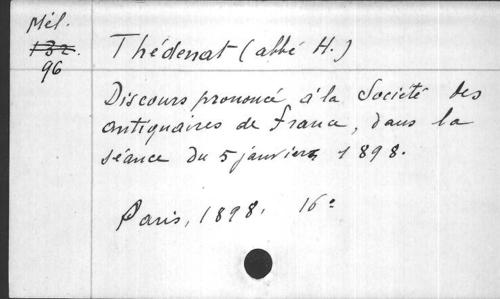 Mél.
132.
96
Thédenat (abbé H.)
Discours prononcé à la Société des
antiquaires de France, dans la
séance du 5 janvier 1898.
Paris, 1898. 16°